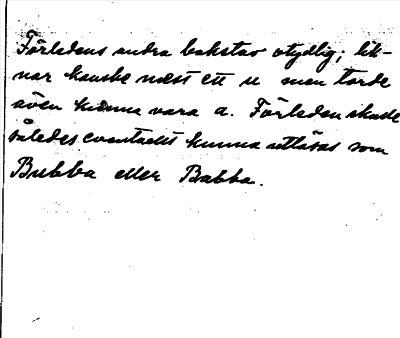 Förledens andra bokstav otydlig; lik-
nar kanske mest ett u men torde
även kunna vara a. Förleden skulle
således eventuellt kunna utläsas som
Bubba eller Babba.